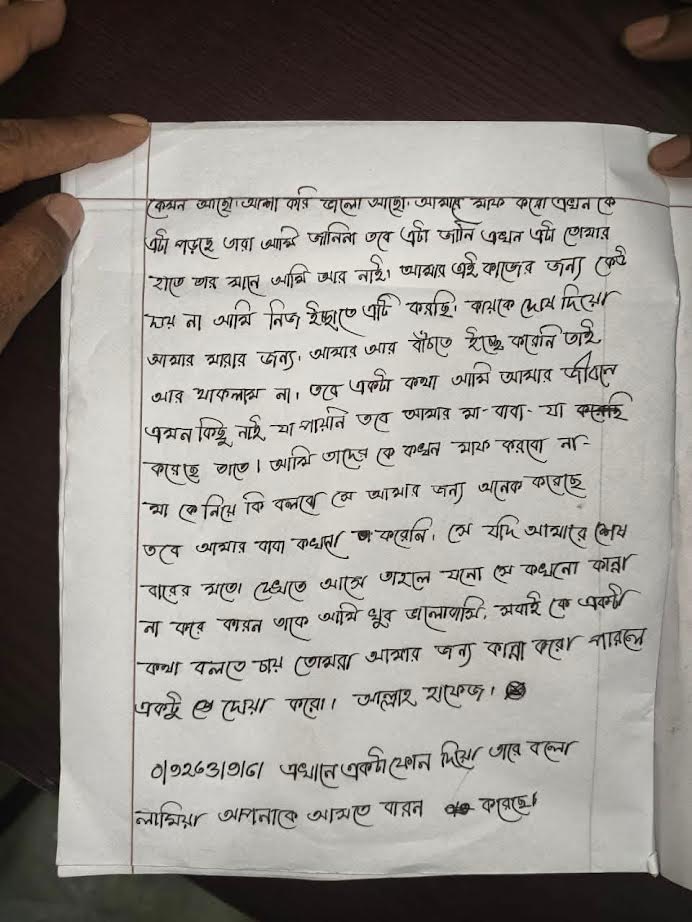 কেমন আছো। আশা করি ভালো আছো। আমারে মাফ করো এখন কে
এটা পড়ছে তারা আমি জানিনা তবে এটা জানি এখন এটা তোমার
হাতে তার মানে আমি আর নাই। আমার এই কাজের জন্য কেউ
দায় না আমি নিজ ইচ্ছাতে এটি করছি। কারকে দোষ দিয়ো
আমার মারার জন্য। আমার আর বাঁচতে ইচ্ছে করেনি তাই
আর থাকলাম না। তবে একটা কথা আমি আমার জীবনে
এমন কিছু নাই যা পায়নি তবে আমার মা-বাবা-যা
করেছে তাতে। আমি তাদের কে কখন মাফ করবো না-
মা কে নিয়ে কি বলবো সে আমার জন্য অনেক করেছে
তবে আমার বাবা কখনো করেনি। সে যদি আমারে শেষ
বারের মতো দেখতে আসে তাহলে যনো সে কখনো কান্না
না করে কারন তাকে আমি খুব ভালোবাসি। সবাই কে একটা
কথা বলতে চায় তোমরা আমার জন্য কান্না করো পারলে
একটু দোয়া করো। আল্লাহ হাফেজ।
এখানে একটা ফোন দিয়ো তারে বলো
লামিয়া আপনাকে আসতে বারন করেছে।